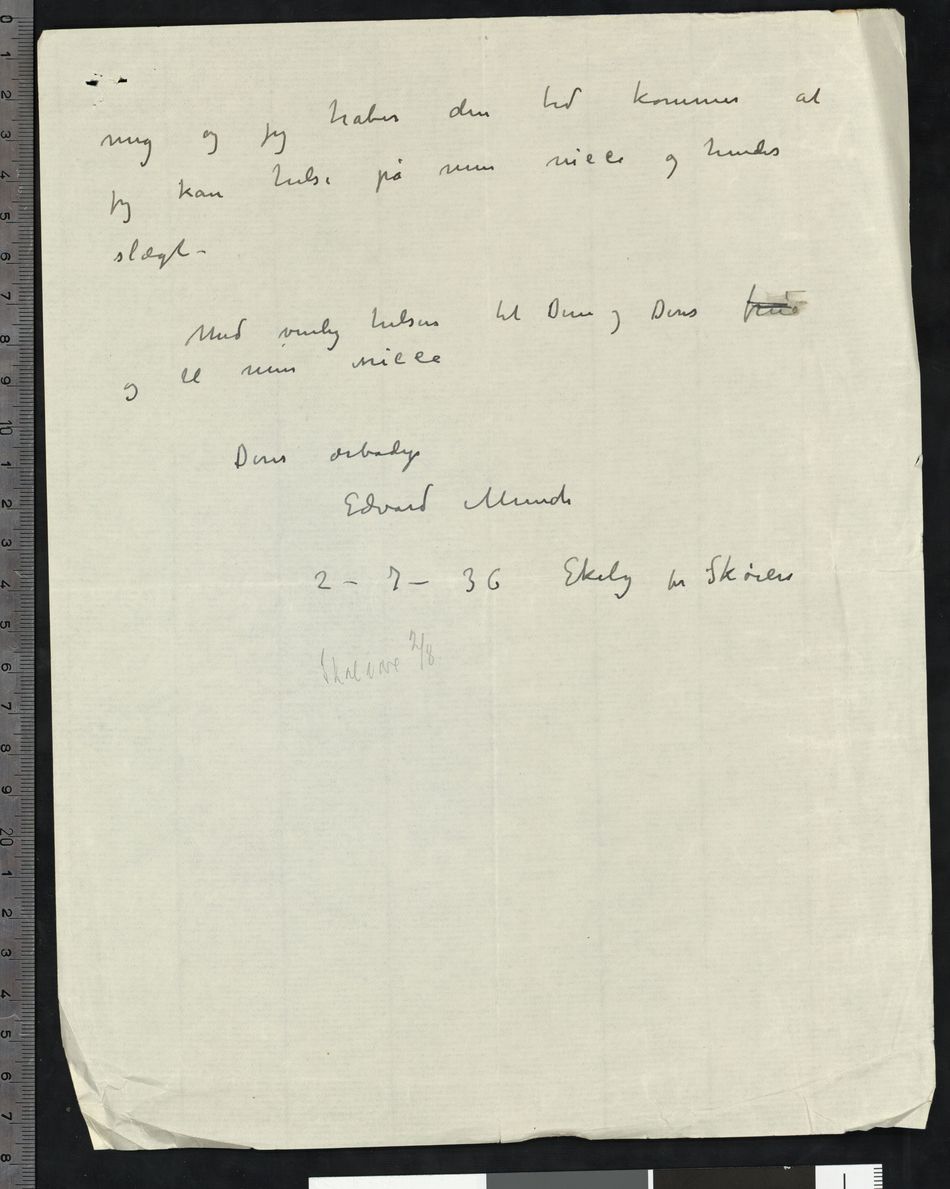 mig og jeg håber den tid kommer at
jeg kan hilse på min niece og hendes
slægt –
Med venlig hilsen til Dem og Deres frue
og til min niece
Deres ærbødige
Edvard Munch
2 – 7 – 36 Ekely pr Skøien
Skal være 2/8